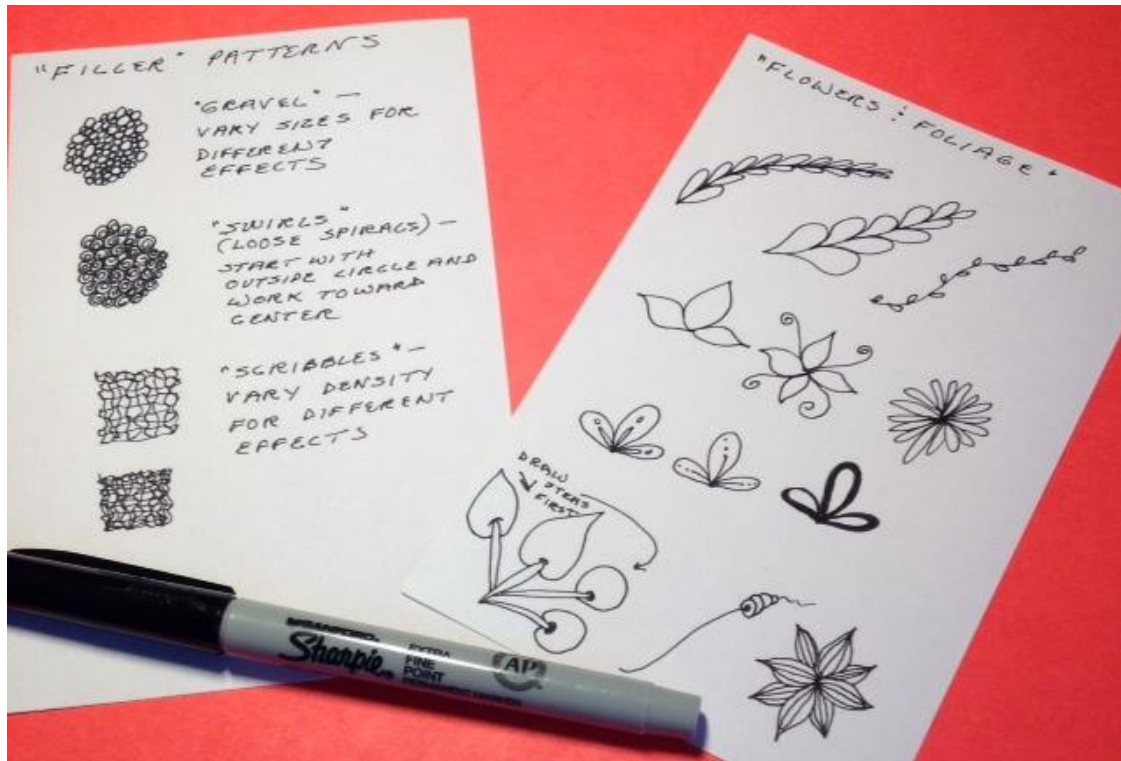 "FILLER" PATTERNS
"GRAVEL" —
VARY SIZES FOR
DIFFERENT
EFFECTS
"SWIRLS"
(LOOSE SPIRALS) —
START WITH
OUTSIDE CIRCLE AND
WORK TOWARD
CENTER
"SCRIBBLES" —
VARY DENSITY
FOR DIFFERENT
EFFECTS
"FLOWERS & FOLIAGE"
DRAW
STEMS
FIRST
SANFORD
Sharpie
EXTRA
FINE
POINT
PERMANENT MARKER
AP